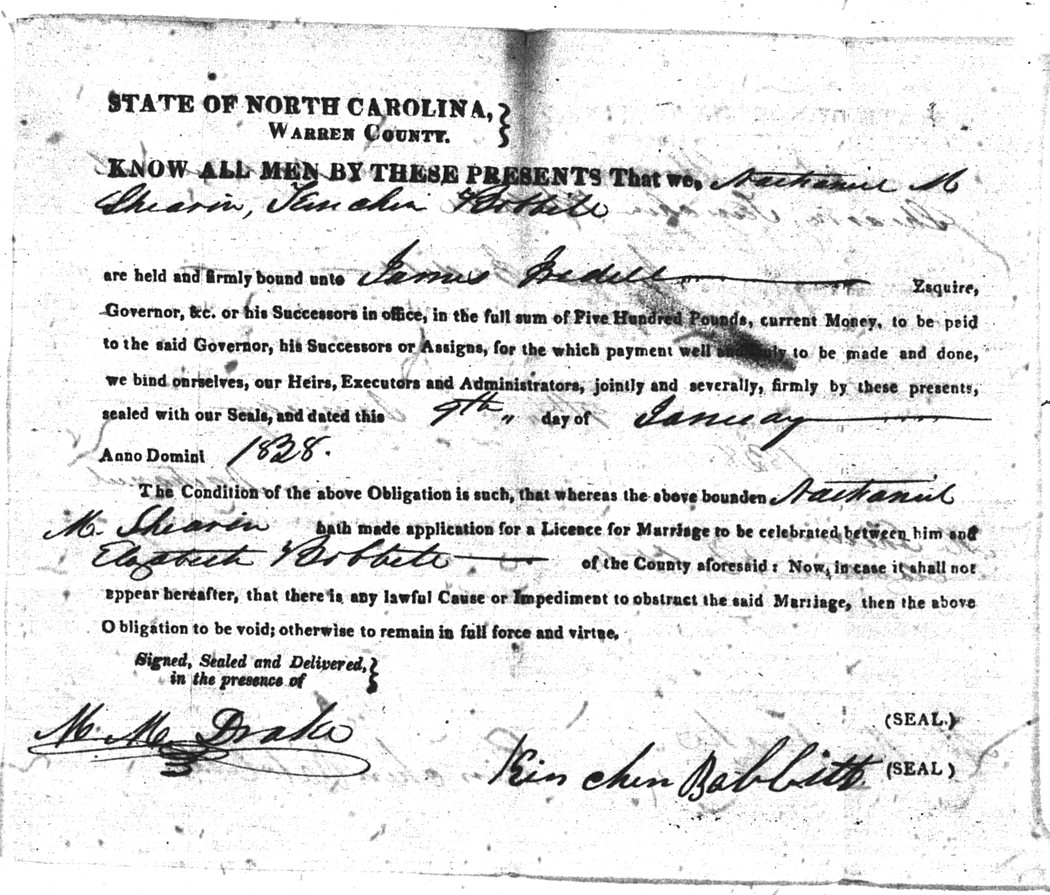 STATE OF NORTH CAROLINA,
WARREN COUNTY.
KNOW ALL MEN BY THESE PRESENTS That we, Nathaniel M
Shearin, Kinchin Bobbitt
are held and firmly bound unto James Iredell Esquire,
Governor, &c. or his Successors in office, in the full sum of Five Hundred Pounds, current Money, to be paid
to the said Governor, his Successors or Assigns, for the which payment well and truly to be made and done,
we bind ourselves, our Heirs, Executors and Administrators, jointly and severally, firmly by these presents,
sealed with our Seals, and dated this 9th „ day of January
Anno Domini 1828.
The Condition of the above Obligation is such, that whereas the above bounden Nathaniel
M. Shearin hath made application for a Licence for Marriage to be celebrated between him and
Elizabeth Bobbitt of the County aforesaid: Now, in case it shall not
appear hereafter, that there is any lawful Cause or Impediment to obstruct the said Marriage, then the above
Obligation to be void; otherwise to remain in full force and virtue.
Signed, Sealed and Delivered,
in the presence of
(SEAL.)
M. M. Drake
Kinchen Bobbitt (SEAL)